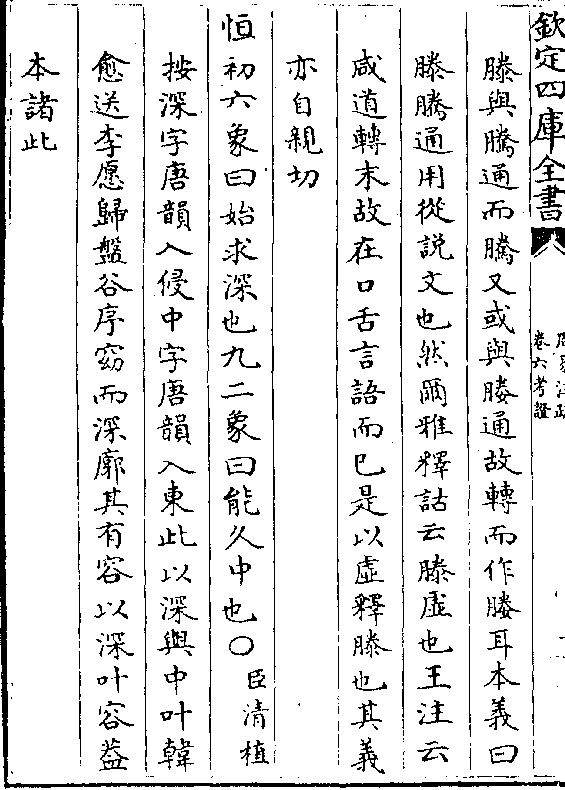 欽定四庫全書
卷六考證
滕與騰通而騰又或與媵通故轉而作媵耳本義曰
滕騰通用從説文也然爾雅釋詁云滕虛也王注云
咸道轉末故在口舌言語而已是以虛釋滕也其義
亦自親切
恒初六象曰始求深也九二象曰能久中也〇臣清植
按深字唐韻入侵中字唐韻入東此以深與中叶韓
愈送李愿歸盤谷序窈而深廓其有容以深叶容葢
本諸此